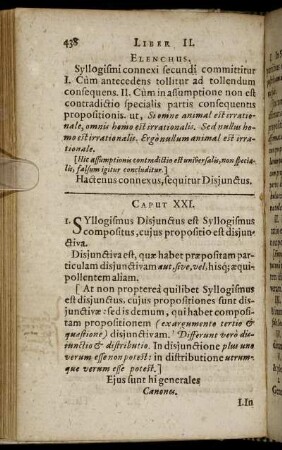 438 LIBER II.
ELENCHUS.
Syllogismi connexi secundi committitur
I. Cùm antecedens tollitur ad tollendum
consequens. II. Cùm in assumptione non est
contradictio specialis partis consequentis
propositionis. ut, Si omne animal est irratio-
nale, omnis homo est irrationalis. Sed nullus ho-
mo est irrationalis. Ergò nullum animal est irra-
tionale.
[Hîc assumptionis contradictio est universalis, non specia-
lis, falsum igitur concluditur.]
Hactenus connexus, sequitur Disjunctus.
CAPUT XXI.
1. SYllogismus Disjunctus est Syllogismus
compositus, cujus propositio est disjun-
ctiva.
Disjunctiva est, quæ habet præpositam par-
ticulam disjunctivam aut, sive, vel. hisq; æqui-
pollentem aliam.
[At non propterea quilibet Syllogismus
est disjunctus. cujus propositiones sunt dis-
junctivæ: sed is demum, qui habet compos-
itam propositionem (ex argumento tertio &
quæstione) disjunctivam. Differunt verò dis-
iunctio & distributio. In disjunctione plus uno
verum esse non potest: in distributione utrum-
que verum esse potest.]
Ejus sunt hi generales
Canones.
I. In